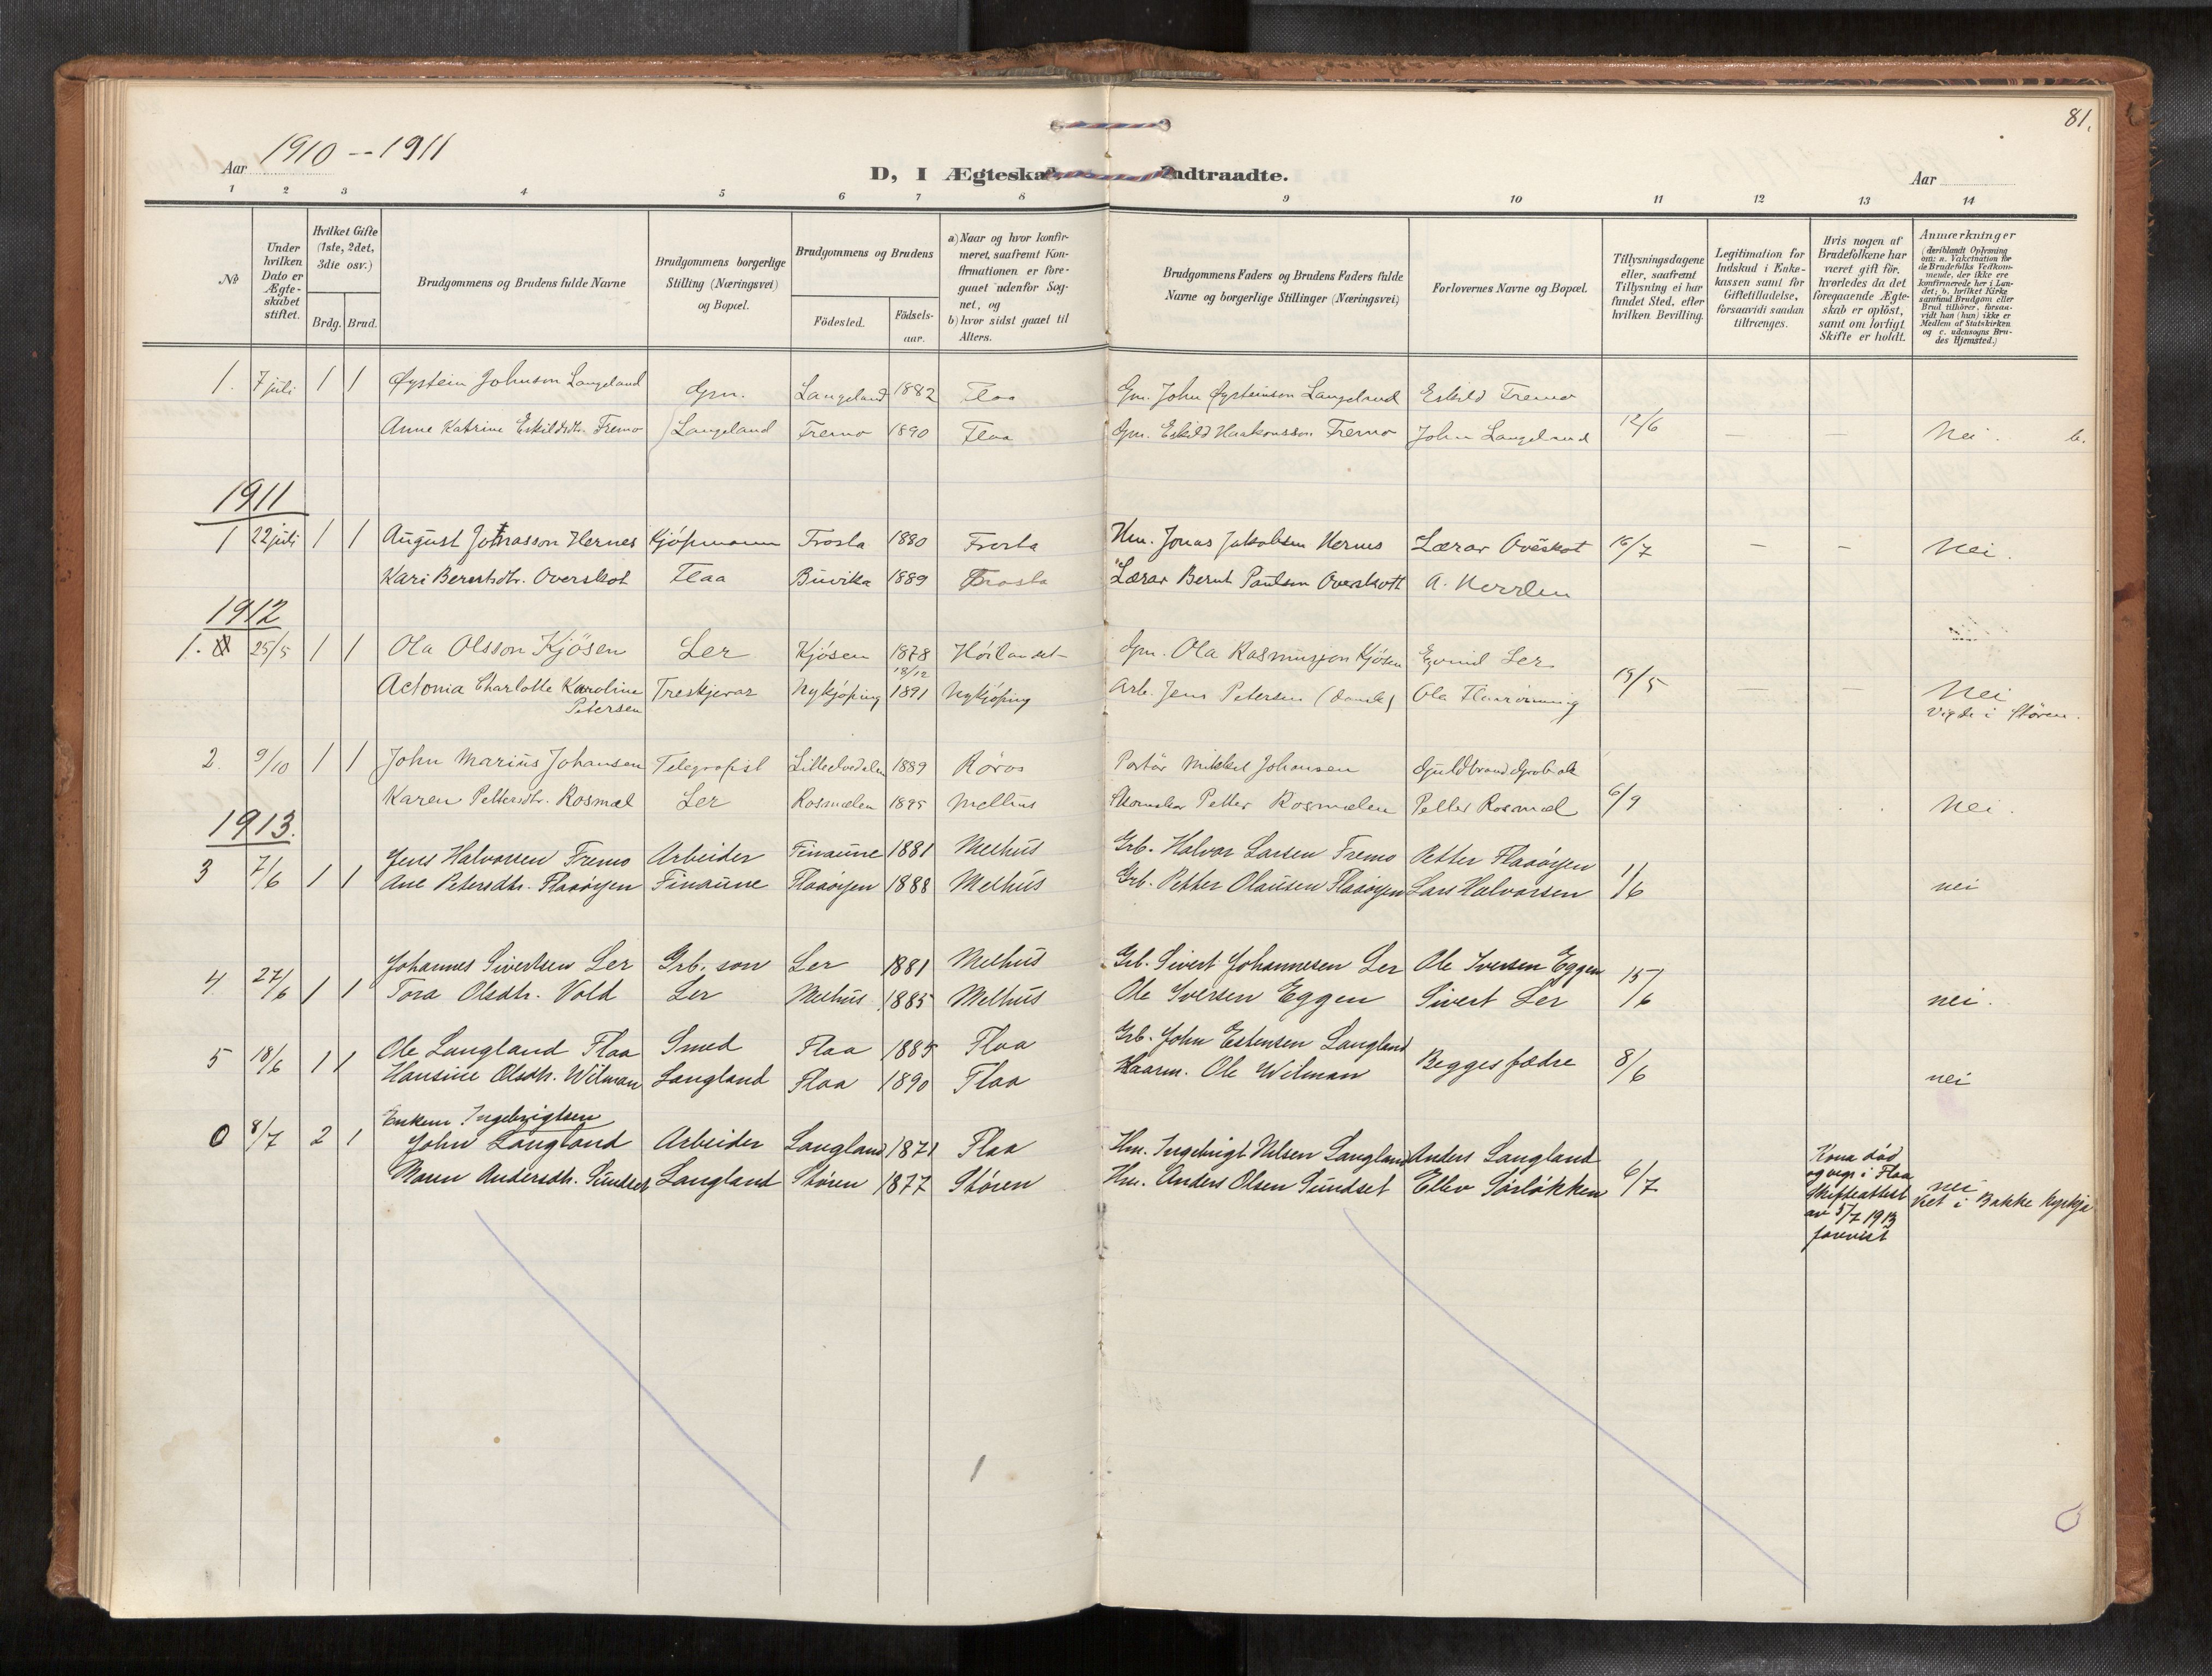 81.
Aar 1910 -- 1911
D, I Ægteska Indtraadte.
Aar
1 2 3 4 5 6 7 8 9 10 11 12 13 14
No
Under hvilken Dato er Ægte-skabet stiftet.
Hvilket Gifte (1ste, 2det, 3die osv.)
Brdg. Brud.
Brudgommens og Brudens fulde Navne
Brudgommens borgerlige Stilling (Næringsvei) og Bopæl.
Brudgommens og Brudens
Födested.
Födsels-aar.
a) Naar og hvor konfir-meret, saafremt Kon-firmationen er fore-gaaet udenfor Sog-net, og
b) hvor sidst gaaet til Alters.
Brudgommens Faders og Brudens Faders fulde Navne og borgerlige Stillinger (Næringsvei)
Forlovernes Navne og Bopæl.
Tillysningsdagene eller, saafremt Tillysning ei har fundet Sted, efter hvilken Bevilling.
Legitimation for Indskud i Enke-kassen samt for Giftetilladelse, forsaavidt saadan tiltrænges.
Hvis nogen af Brudefolkene har været gift för, hvorledes da det foregaaende Ægte-skab er oplöst, samt om lovligt Skifte er holdt.
Anmærkninger
(deriblandt Oplysning om: a. Vakcination for de Brudefolks Vedkom-mende, der ikke ere konfirmerede her i Lan-det; b. hvilket Kirke-samfund Brudgom eller Brud tilhörer, forsaa-vidt han (hun) ikke er Medlem af Statskirken og c. udensogns Bru-des Hjemsted.)
1. 7 juli 1 1 Øystein Johnson Langeland Gm. Langeland 1882 Flaa Gm. John Øysteinson Langeland Eskild Fremo
Anne Katrine Eskildsdtr. Fremo Langeland Fremo 1890 Flaa Gm. Eskild Haakonsson Fremo John Langeland 12/6 — — Nei. b.
1911
1 22 juli 1 1 August Jonasson Hernes Kjöpmann Frosta 1880 Frosta Hm. Jonas Jakobsen Hernes Lærar Overskot 16/7 — — Nei.
Kari Berntsdtr. Overskot Flaa Buvika 1889 Frosta Lærar Bernt Paulsen Overskott A.
1912
1. 25/5 1 1 Ola Olsson Kjösen Ler Kjösen 1878 Höilandet Gm. Ola Rasmusson Kjösen Eyvind Ler
18/12
Actonia Charlotte Karoline Treskjerar Nykjöping 1891 Nykjöping Arb. Jens Petersen (dansk) Ola 19/5 — — Nei
Petersen Vigde i Støren.
2. 9/10 1 1 John Marius Johansen Telegrafist Lilleelvedalen 1889 Röros Portör Mikkel Johansen Gjuldbrand
Karen Pettersdtr. Rosmæl Ler Rosmælen 1895 Melhus Skomaker Petter Rosmælen Petter Rosmæl 6/9 Nei.
1913.
3 7/6 1 1 Jens Halvorsen Fremo Arbeider Finaune 1881 Melhus Grb. Halvor Larsen Fremo Petter Flaaöyen
Ane Petersdtr. Flaaöyen Finaune Flaaöyen 1888 Melhus Grb. Petter Olausen Flaaöyen Lars Halvorsen 1/6 nei
4 27/6 1 1 Johannes Sivertsen Ler Grb. son Ler 1881 Melhus Grb. Sivert Johannesen Ler Ole Iversen Eggen
Tora Olsdtr. Vold Ler Melhus 1885 Melhus Ole Iversen Eggen Sivert Ler 15/6 nei.
5 18/6 1 1 Ole Langland Flaa Smed Flaa 1885 Flaa Grb. John Estensen Langland
Hansine Olsdtr. Wilman Langland Flaa 1890 Flaa Haarm. Ole Wilman Begges fædre 8/6 nei
Enkem. Ingebrigtsen
0 8/7 2 1 John Langland Arbeider Langland 1871 Flaa Hm. Ingebrigt Nilsen Langland Anders Langland
Maren Andersdtr. Sundset Langland Støren 1877 Støren Hm. Anders Olsen Sundset Ellev Sörlökken 6/7
Kona död
og i Flaa
Skifteattest
av 5/7 1913
forevist
nei
Viet i Bakke Kyrkja